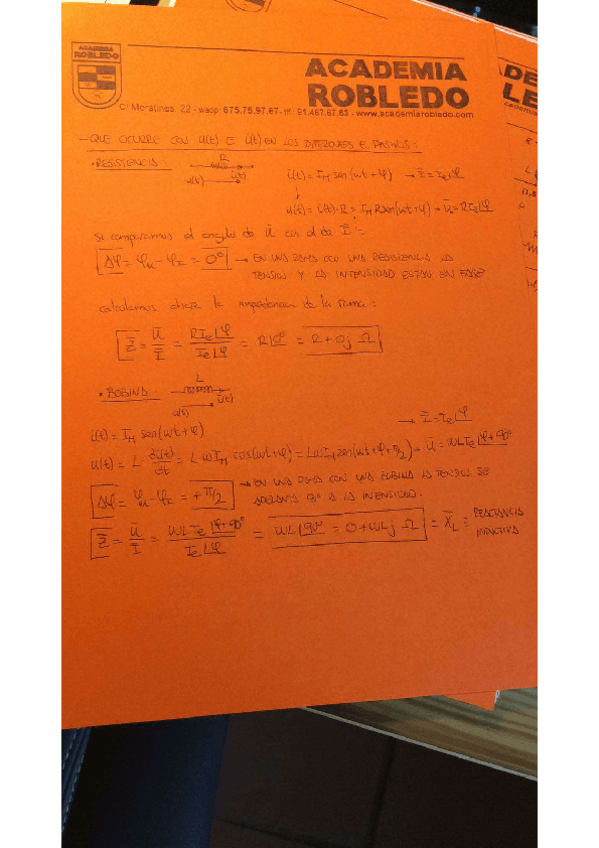 ACADEMIA
ROBLEDO
ACADEMIA
ROBLEDO
C/ Moratines, 22 - wasp: 675.75.97.67 - tf: 91.467.67.63 - www.academiarobledo.com
- QUE OCURRE CON u(t) E i(t) EN LOS DIFERENTES E. PASIVOS:
• RESISTENCIA:
R
i(t)
u(t)
i(t) = I_M sen(wt+φ) → Ī = Ie∠φ
u(t) = i(t)·R = I_M R sen(wt+φ) → Ū = R Ie∠φ
Si comparamos el angulo de Ū con el de Ī:
Δφ = φu - φI = 0° → EN UNA RAMA CON UNA RESISTENCIA LA
TENSION Y LA INTENSIDAD ESTAN EN FASE
calculamos ahora la impedancia de la rama:
Z̄ = Ū/Ī = R Ie∠φ / Ie∠φ = R∠0° = R + 0j Ω
• BOBINA:
L
i(t)
u(t)
i(t) = I_M sen(wt+φ) → Ī = Ie∠φ
u(t) = L di(t)/dt = L w I_M cos(wt+φ) = L w I_M sen(wt+φ+π/2) → Ū = wL Ie∠φ+90°
Δφ = φu - φI = +π/2 → EN UNA RAMA CON UNA BOBINA LA TENSION SE
ADELANTA 90° A LA INTENSIDAD.
Z̄ = Ū/Ī = wL Ie∠φ+90° / Ie∠φ = wL∠90° = 0 + wLj Ω = X̄_L ≡ REACTANCIA
INDUCTIVA